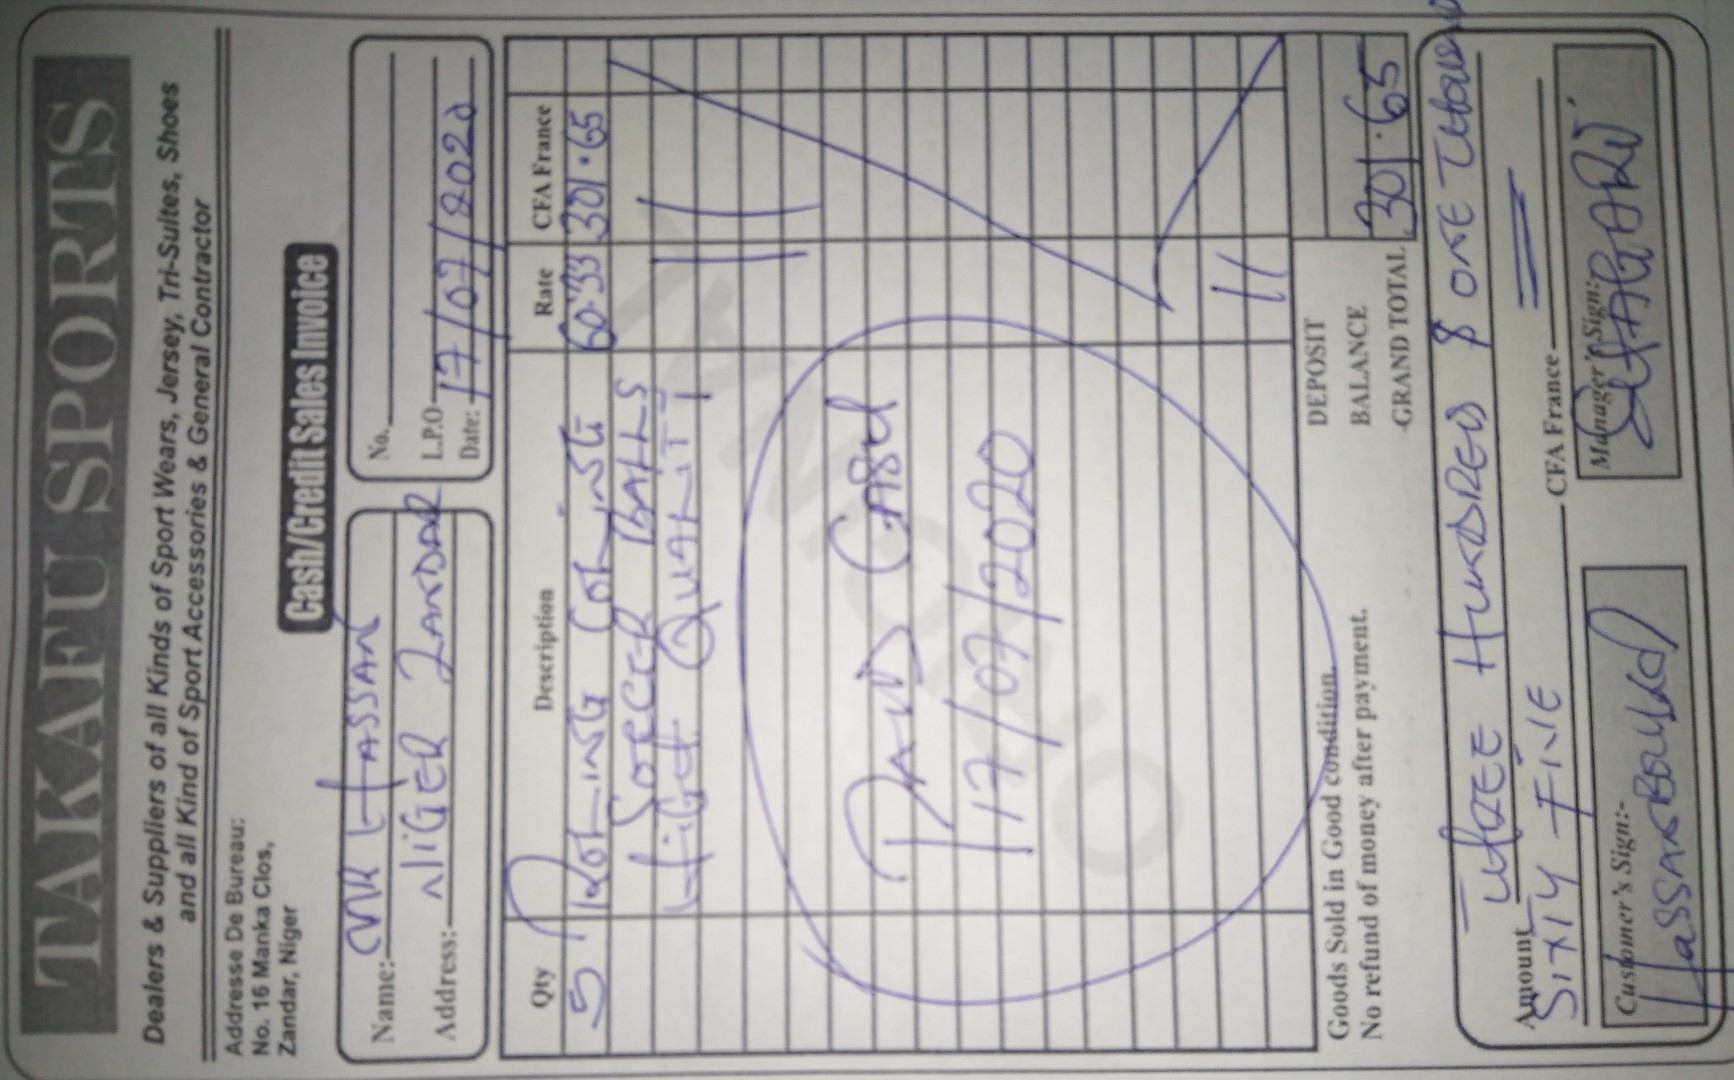 TAKAFU SPORTS
Dealers & Suppliers of all Kinds of Sport Wears, Jersey, Tri-Suites, Shoes
and all Kind of Sport Accessories & General Contractor
Addresse De Bureau:
No. 16 Manka Clos,
Zandar, Niger
Cash/Credit Sales Invoice
Name: MR HASSAN
Address: NIGER ZANDAR
No.
L.P.O
Date: 17/07/2020
Qty Description Rate CFA France
5 60.33 301.65
SOCCER BALLS
HIGH QUALITY
PAID CASH
17/07/2020
Goods Sold in Good condition.
No refund of money after payment.
DEPOSIT
BALANCE
GRAND TOTAL 301.65
Amount THREE HUNDRED & ONE THOUSAND
SIXTY FIVE CFA France
Customer's Sign:-
Manager's Sign:-